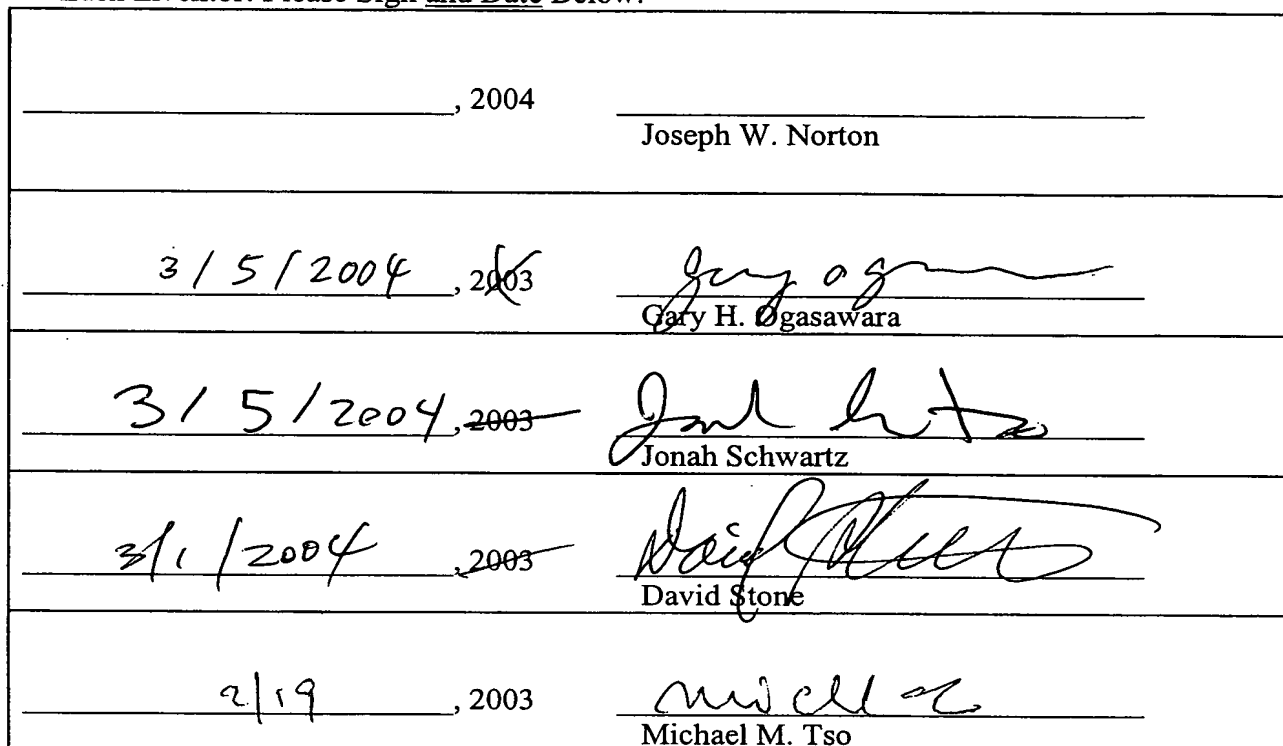 Please Sign and Date Below:
, 2004
Joseph W. Norton
3/5/2004, 2003
Gary H. Ogasawara
3/5/2004, 2003
Jonah Schwartz
3/1/2004, 2003
David Stone
2/19, 2003
Michael M. Tso